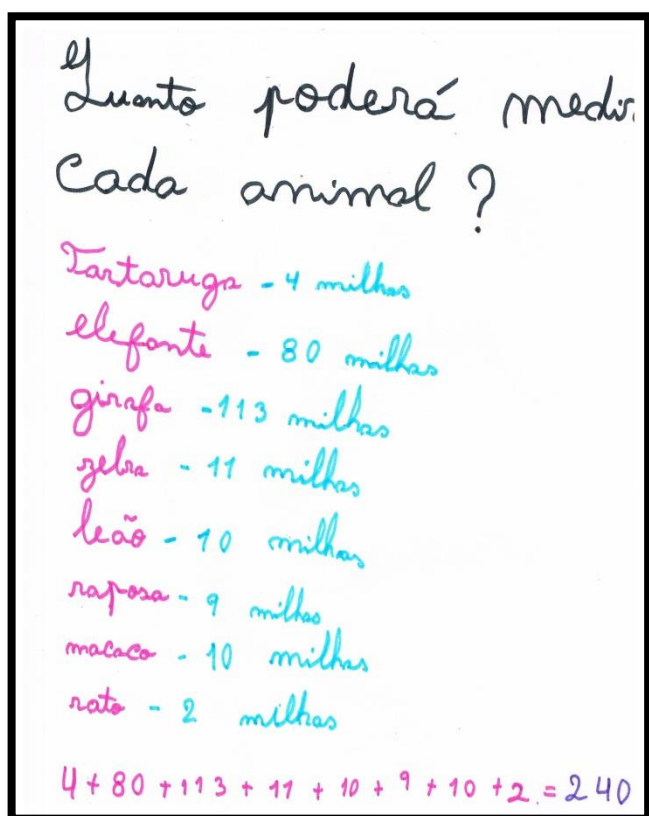 Quanto poderá medir
cada animal?
Tartaruga - 4 milhas
elefante - 80 milhas
girafa - 113 milhas
zebra - 11 milhas
leão - 10 milhas
raposa - 9 milhas
macaco - 10 milhas
rato - 2 milhas
4 + 80 + 113 + 11 + 10 + 9 + 10 + 2 = 240